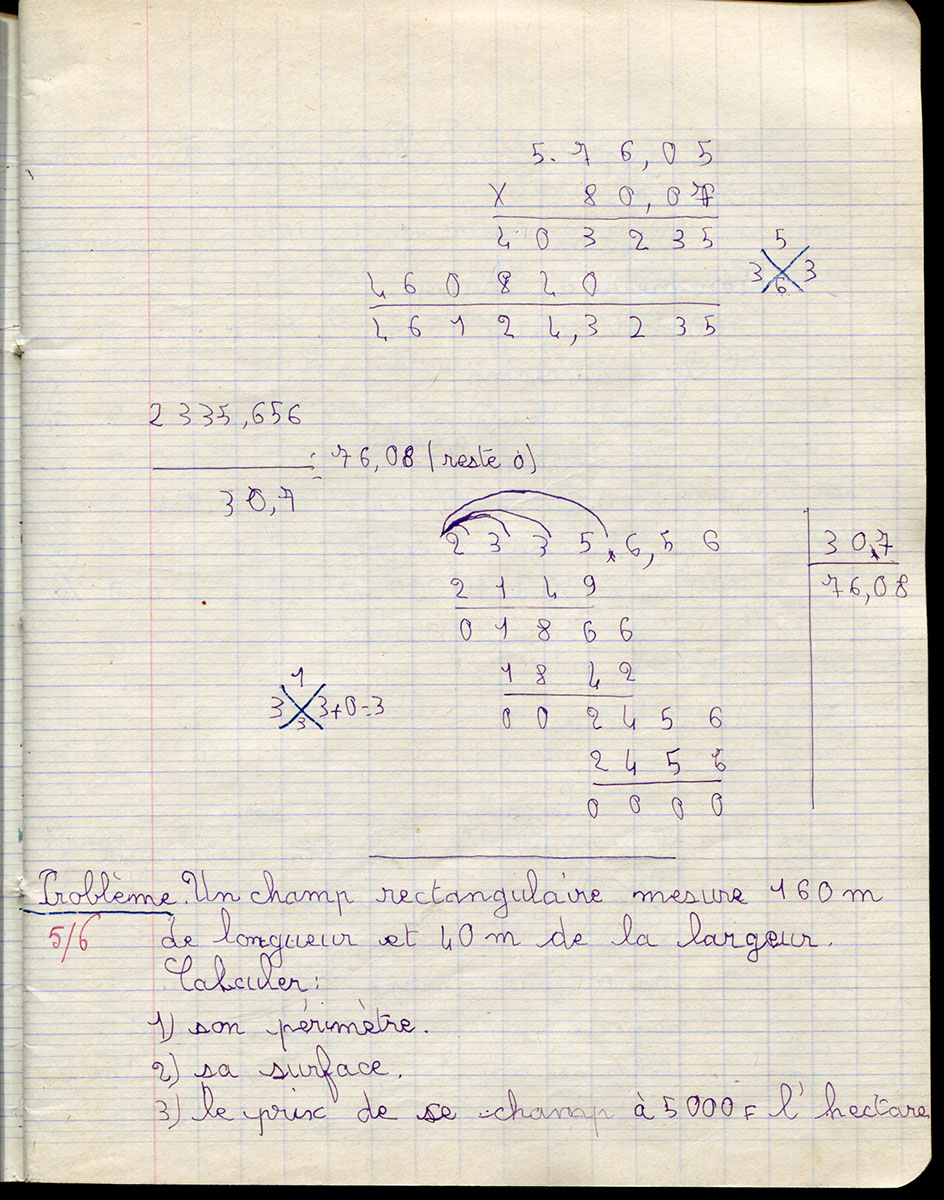 5. 7 6, 0 5
X 8 0, 0 7
4 0 3 2 3 5
5
3 3
6
4 6 0 8 4 0
4 6 1 2 4, 3 2 3 5
2 335,656
= 76,08 (reste 0)
3 0,7
2 3 3 5, 6, 5 6
3 0,7
2 1 4 9
76,08
0 1 8 6 6
1 8 4 2
1
3 3+0=3
3
0 0 2 4 5 6
2 4 5 6
0 0 0 0
Problème. Un champ rectangulaire mesure 160 m
5/6
de longueur et 40 m de la largeur.
Calculer:
1) son périmètre.
2) sa surface.
3) le prix de se champ à 5 000F l'hectare